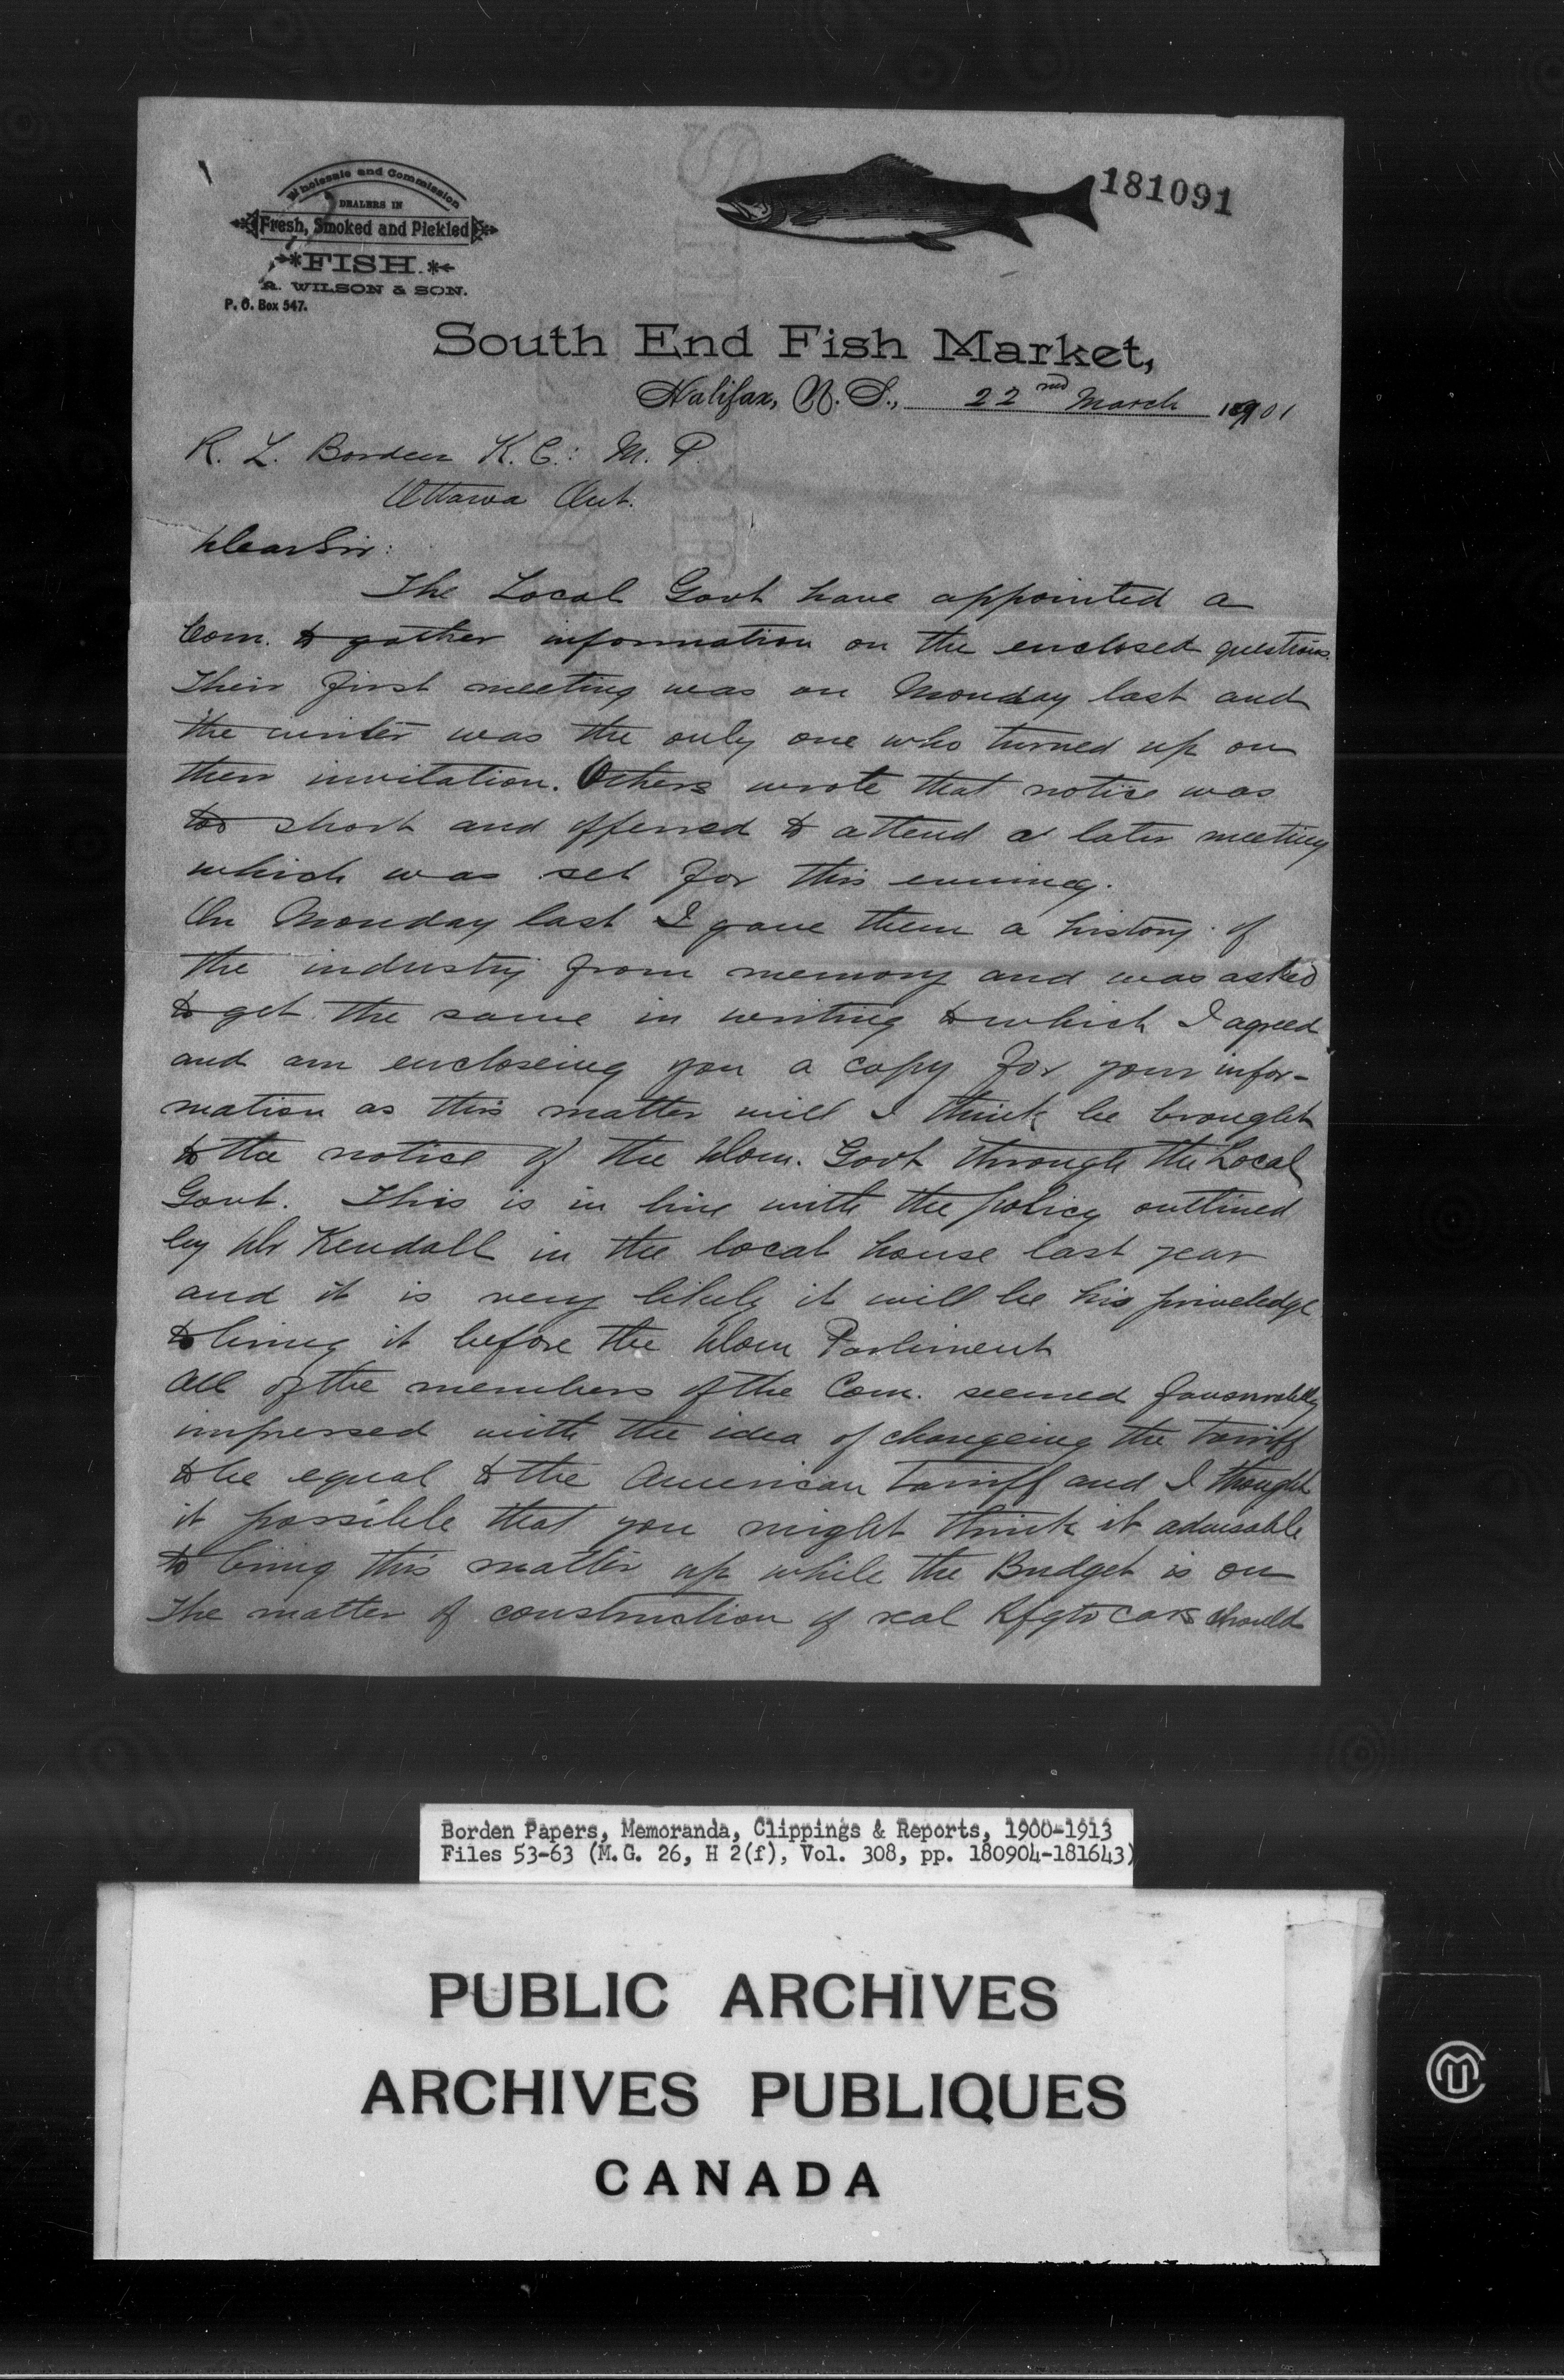 Wholesale and Commission
DEALERS IN
Fresh, Smoked and Pickled
FISH.
A. WILSON & SON.
P. O. Box 547.
181091
South End Fish Market,
Halifax, N. S., 22nd March 1901
R. L. Borden K. C.: M. P.
Ottawa Ont.
Dear Sir:
The Local Govt have appointed a
Com. to gather information on the enclosed questions.
Their first meeting was on Monday last and
the writer was the only one who turned up on
their invitation. Others wrote that notice was
too short and offered to attend a later meeting
which was set for this evening.
On Monday last I gave them a history of
the industry from memory and was asked
to get the same in writing to which I agreed
and am encloseing you a copy for your infor-
mation as this matter will I think be brought
to the notice of the Dom. Govt through the Local
Govt. This is in line with the policy outlined
by Dr Kendall in the local house last year
and it is very likely it will be his priveledge
to bring it before the Dom Parliment
All of the members of the Com. seemed favourably
impressed with the idea of changeing the tariff
to be equal to the American tariff and I thought
it possible that you might think it advisable
to bring this matter up while the Budget is on
The matter of construction of real Rfgtr cars should
Borden Papers, Memoranda, Clippings & Reports, 1900-1913
Files 53-63 (M.G. 26, H 2(f), Vol. 308, pp. 180904-181643)
PUBLIC ARCHIVES
ARCHIVES PUBLIQUES
CANADA